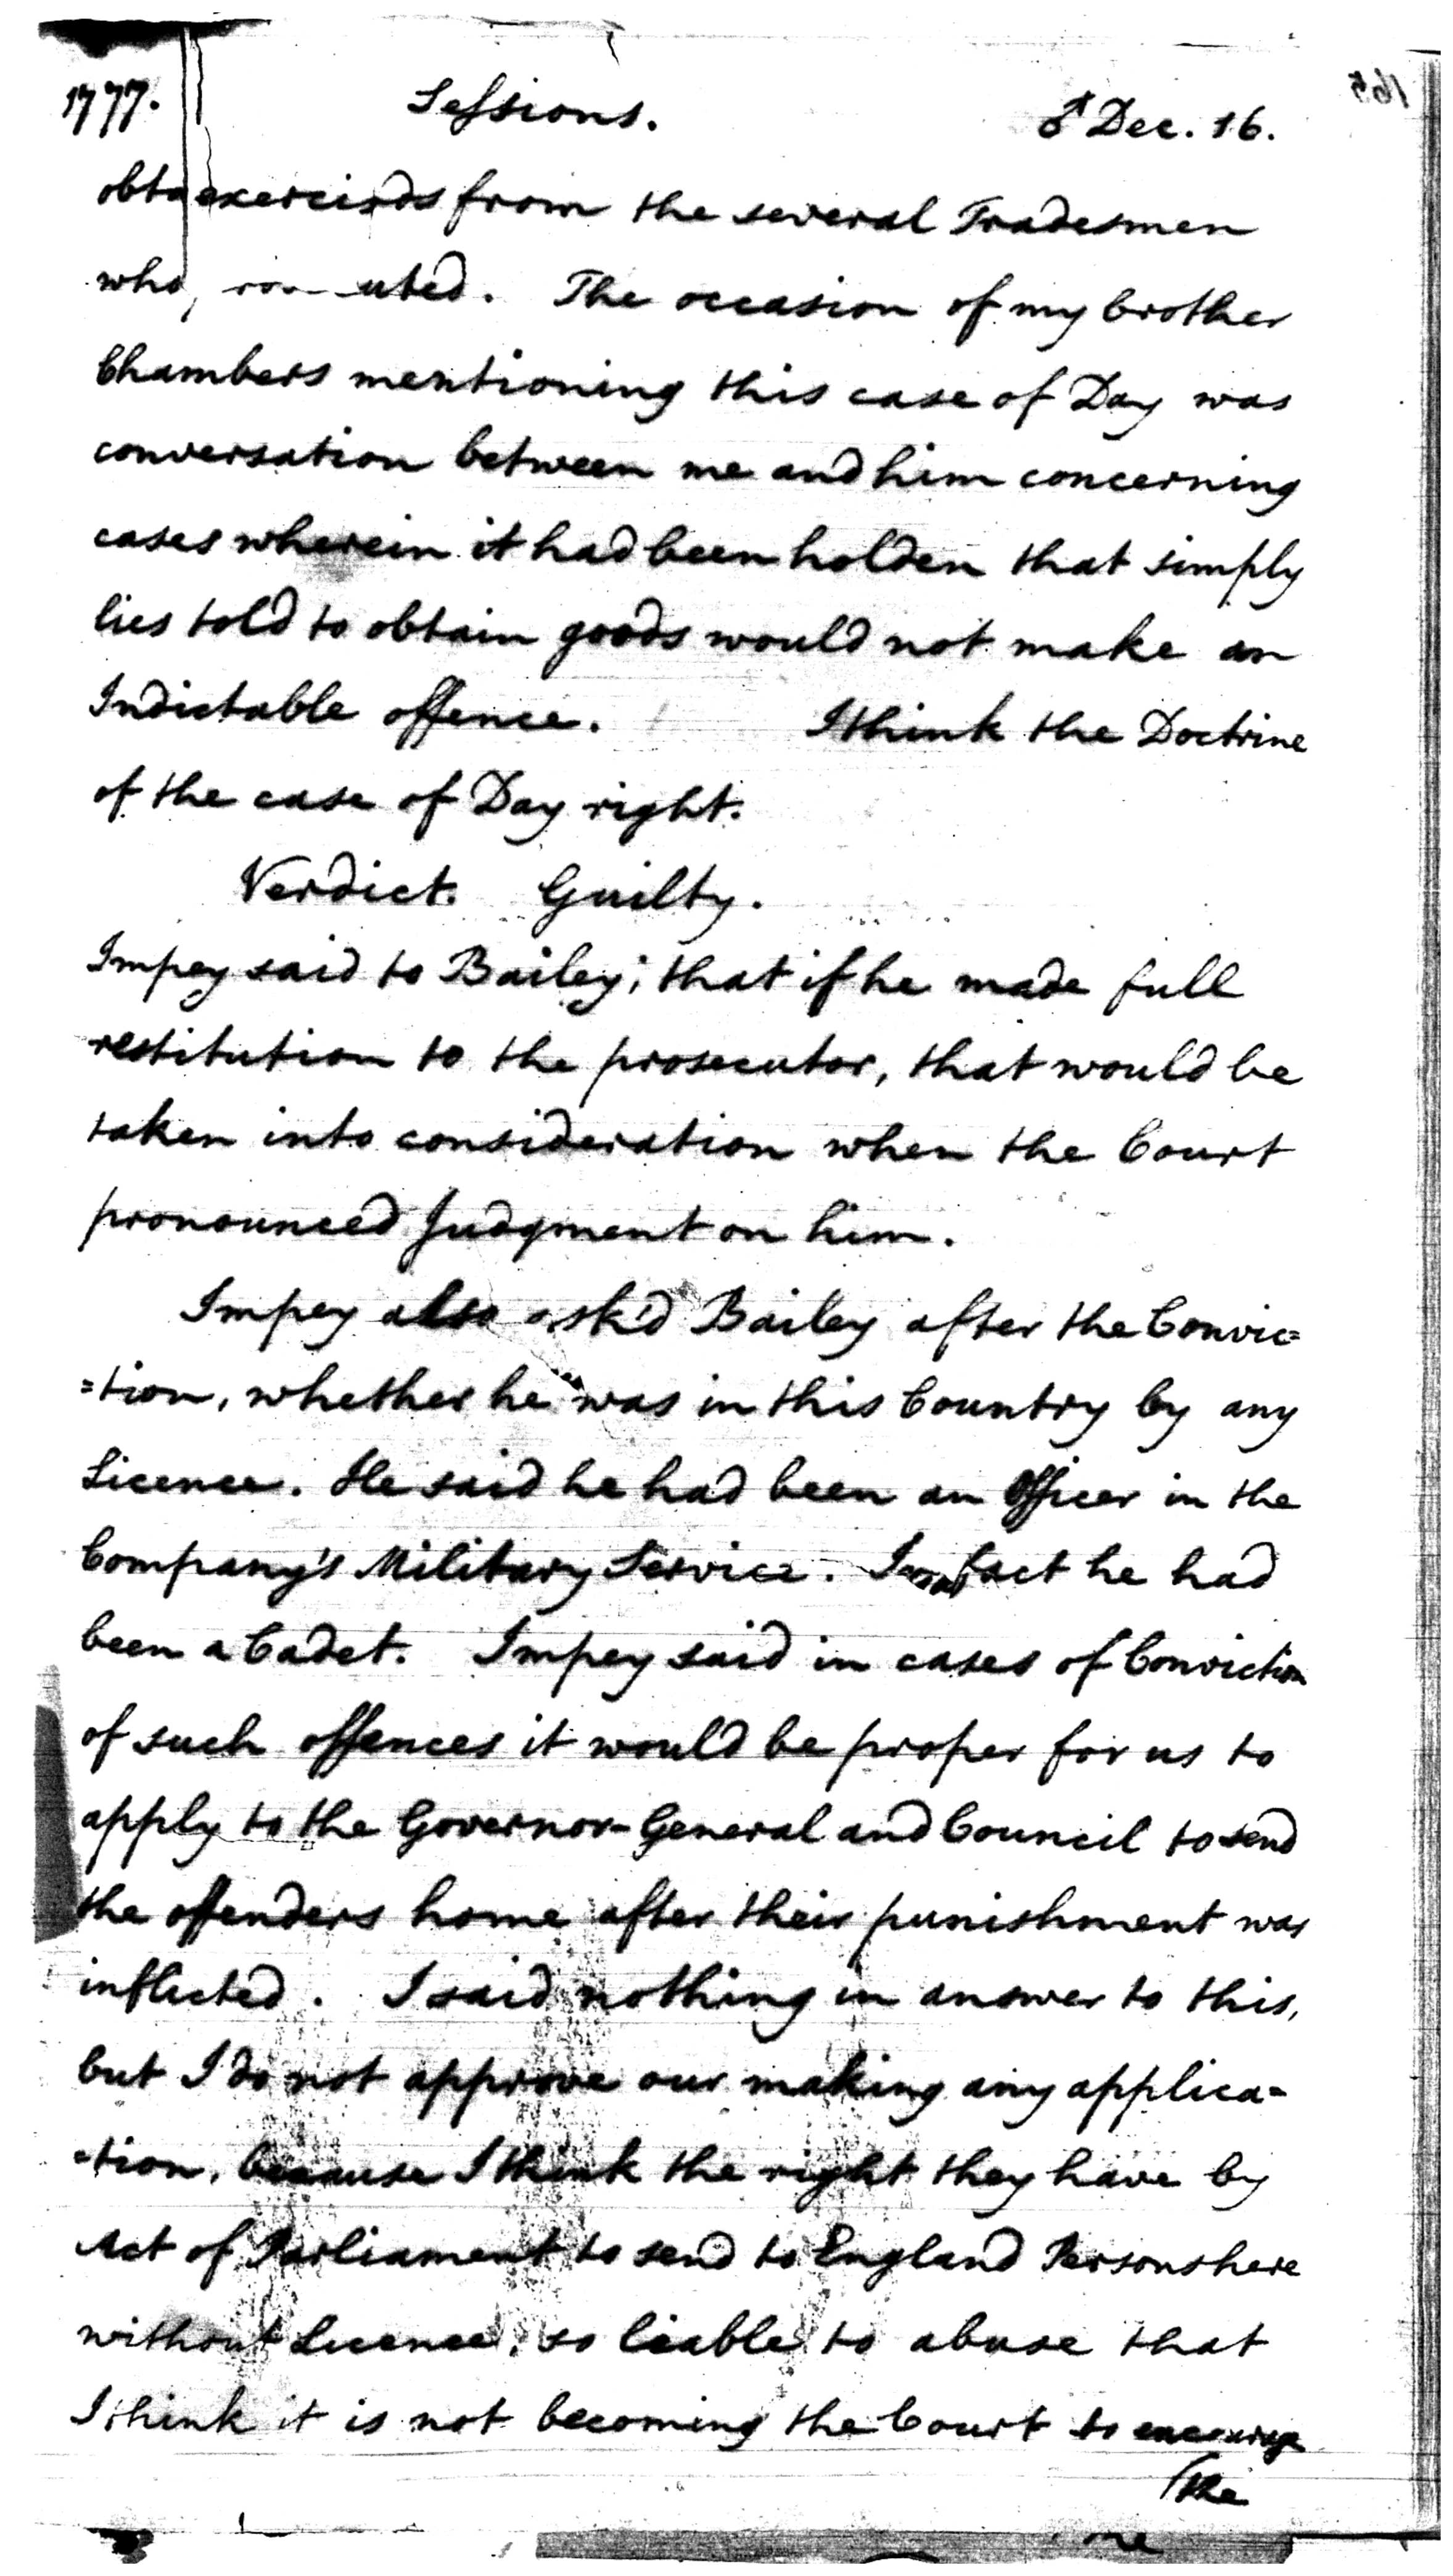 1777. Sessions. ♂ Dec. 16.
from the several Tradesmen
who The occasion of my brother
Chambers mentioning this case of Day was
conversation between me and him concerning
cases wherein it had been holden that simply
lies told to obtain goods would not make an
Indictable offence. I think the Doctrine
of the case of Day right.
Verdict. Guilty.
Impey said to Bailey; that if he made full
restitution to the prosecutor, that would be
taken into consideration when the Court
pronounced Judgment on him.
Impey also ask'd Bailey after the Convic=
=tion, whether he was in this Country by any
Licence. He said he had been an Officer in the
Company's Military Service. In fact he had
been a Cadet. Impey said in cases of Conviction
of such offences it would be proper for us to
apply to the Governor-General and Council to send
the offenders home after their punishment was
inflicted. I said nothing in answer to this,
but I do not approve our making any applica=
=tion, because I think the right they have by
Act of Parliament to send to England Persons here
without Licence, so liable to abuse that
I think it is not becoming the Court to encourage
(the